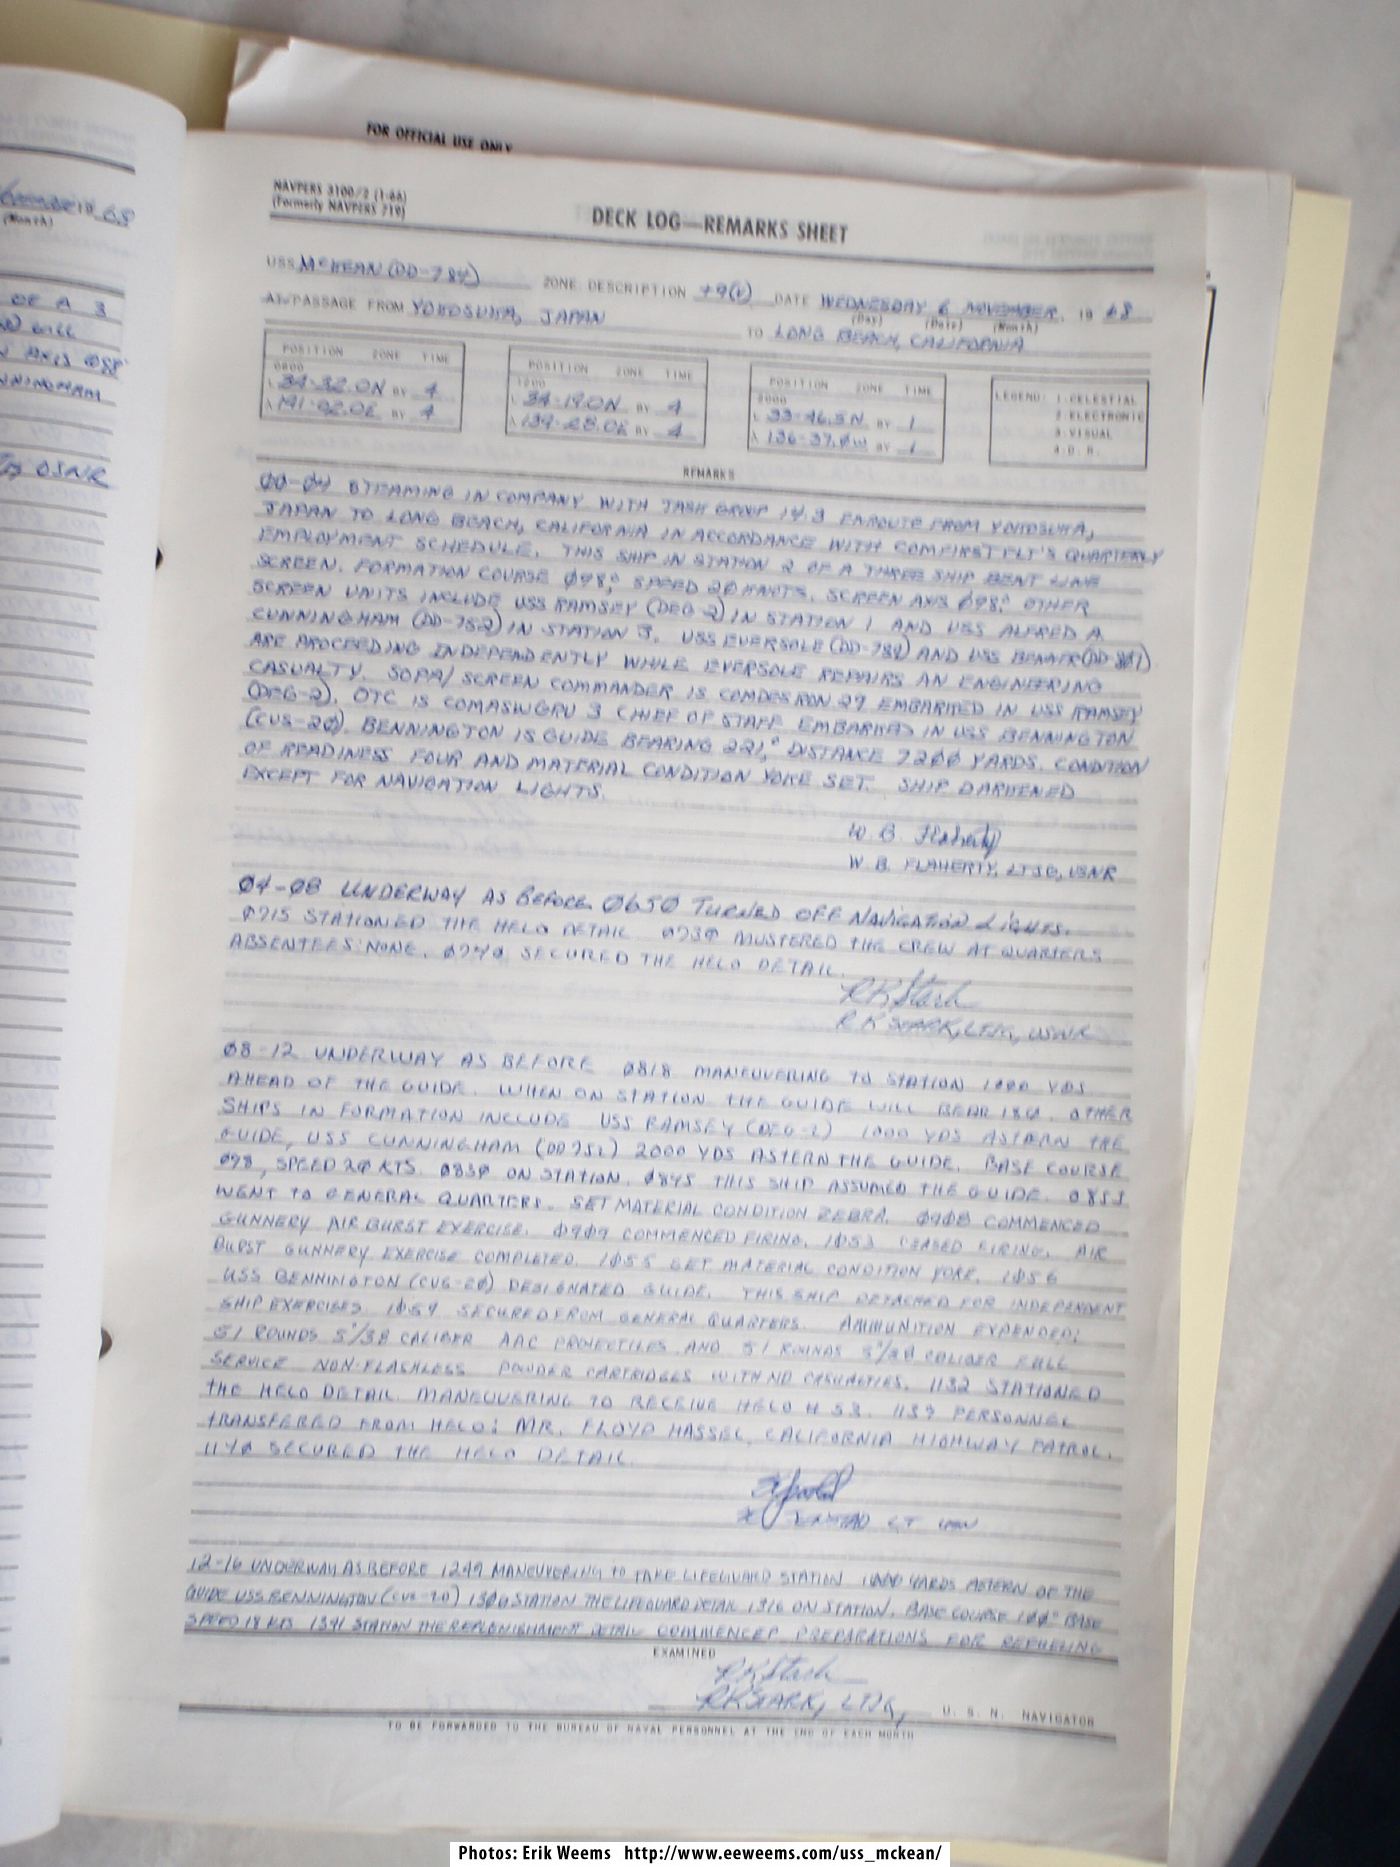 FOR OFFICIAL USE ONLY
NAVPERS 3100/2 (1-66)
(Formerly NAVPERS 719)
DECK LOG—REMARKS SHEET
USS McKEAN (DD-784) ZONE DESCRIPTION +9(I) DATE WEDNESDAY 6 NOVEMBER, 19 68
(Day) (Date) (Month)
AT/PASSAGE FROM YOKOSUKA, JAPAN TO LONG BEACH, CALIFORNIA
POSITION ZONE TIME
0800
L 34-32.0N BY 4
λ 141-02.0E BY 4
POSITION ZONE TIME
1200
L 34-19.0N BY 4
λ 139-28.0E BY 4
POSITION ZONE TIME
2000
L 33-46.5N BY 1
λ 136-37.0W BY 1
LEGEND: 1-CELESTIAL
2-ELECTRONIC
3-VISUAL
4-D.R.
REMARKS
00-04 STEAMING IN COMPANY WITH TASK GROUP 14.3 ENROUTE FROM YOKOSUKA,
JAPAN TO LONG BEACH, CALIFORNIA IN ACCORDANCE WITH COMFIRSTFLT'S QUARTERLY
EMPLOYMENT SCHEDULE. THIS SHIP IN STATION 2 OF A THREE SHIP BENT LINE
SCREEN. FORMATION COURSE 098°, SPEED 20 KNOTS. SCREEN AXIS 098°. OTHER
SCREEN UNITS INCLUDE USS RAMSEY (DEG-2) IN STATION 1 AND USS ALFRED A
CUNNINGHAM (DD-752) IN STATION 3. USS EVERSOLE (DD-789) AND USS BENNER (DD-807)
ARE PROCEEDING INDEPENDENTLY WHILE EVERSOLE REPAIRS AN ENGINEERING
CASUALTY. SOPA/SCREEN COMMANDER IS COMDESRON 29 EMBARKED IN USS RAMSEY
(DEG-2). OTC IS COMASWGRU 3 CHIEF OF STAFF EMBARKED IN USS BENNINGTON
(CVS-20). BENNINGTON IS GUIDE BEARING 221°, DISTANCE 7200 YARDS. CONDITION
OF READINESS FOUR AND MATERIAL CONDITION YOKE SET. SHIP DARKENED
EXCEPT FOR NAVIGATION LIGHTS.
W. B. Flaherty
W. B. FLAHERTY, LTJG, USNR
04-08 UNDERWAY AS BEFORE 0650 TURNED OFF NAVIGATION LIGHTS.
0715 STATIONED THE HELO DETAIL 0730 MUSTERED THE CREW AT QUARTERS
ABSENTEES: NONE. 0740 SECURED THE HELO DETAIL.
RK Stark
R K STARK, LTJG, USNR
08-12 UNDERWAY AS BEFORE 0818 MANEUVERING TO STATION 1000 YDS
AHEAD OF THE GUIDE. WHEN ON STATION THE GUIDE WILL BEAR 180. OTHER
SHIPS IN FORMATION INCLUDE USS RAMSEY (DEG-2) 1000 YDS ASTERN THE
GUIDE, USS CUNNINGHAM (DD752) 2000 YDS ASTERN THE GUIDE. BASE COURSE
098, SPEED 20 KTS. 0830 ON STATION. 0845 THIS SHIP ASSUMED THE GUIDE. 0855
WENT TO GENERAL QUARTERS. SET MATERIAL CONDITION ZEBRA. 0908 COMMENCED
GUNNERY AIR BURST EXERCISE. 0909 COMMENCED FIRING. 1053 CEASED FIRING. AIR
BURST GUNNERY EXERCISE COMPLETED. 1055 SET MATERIAL CONDITION YOKE. 1056
USS BENNINGTON (CVS-20) DESIGNATED GUIDE. THIS SHIP DETACHED FOR INDEPENDENT
SHIP EXERCISES. 1059 SECURED FROM GENERAL QUARTERS. AMMUNITION EXPENDED:
51 ROUNDS 5"/38 CALIBER AAC PROJECTILES AND 51 ROUNDS 5"/38 CALIBER FULL
SERVICE NON-FLASHLESS POWDER CARTRIDGES WITH NO CASUALTIES. 1132 STATIONED
THE HELO DETAIL. MANEUVERING TO RECEIVE HELO # 53. 1139 PERSONNEL
TRANSFERED FROM HELO: MR. FLOYD HASSEL, CALIFORNIA HIGHWAY PATROL.
1140 SECURED THE HELO DETAIL.
LT USN
12-16 UNDERWAY AS BEFORE 1249 MANEUVERING TO TAKE LIFEGUARD STATION 1000 YARDS ASTERN OF THE
GUIDE USS BENNINGTON (CVS-20) 1306 STATION THE LIFEGUARD DETAIL 1316 ON STATION. BASE COURSE 100° BASE
SPEED 18 KTS 1341 STATION THE REPLENISHMENT DETAIL COMMENCED PREPARATIONS FOR REFUELING
EXAMINED
RK Stark
RK STARK, LTJG, U. S. N. NAVIGATOR
TO BE FORWARDED TO THE BUREAU OF NAVAL PERSONNEL AT THE END OF EACH MONTH
Photos: Erik Weems http://www.eeweems.com/uss_mckean/